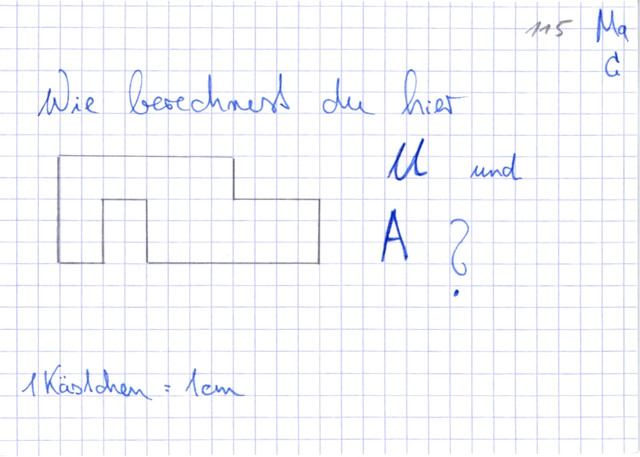 115 Ma
G
Wie berechnest du hier
U und
A ?
1 Kästchen = 1cm